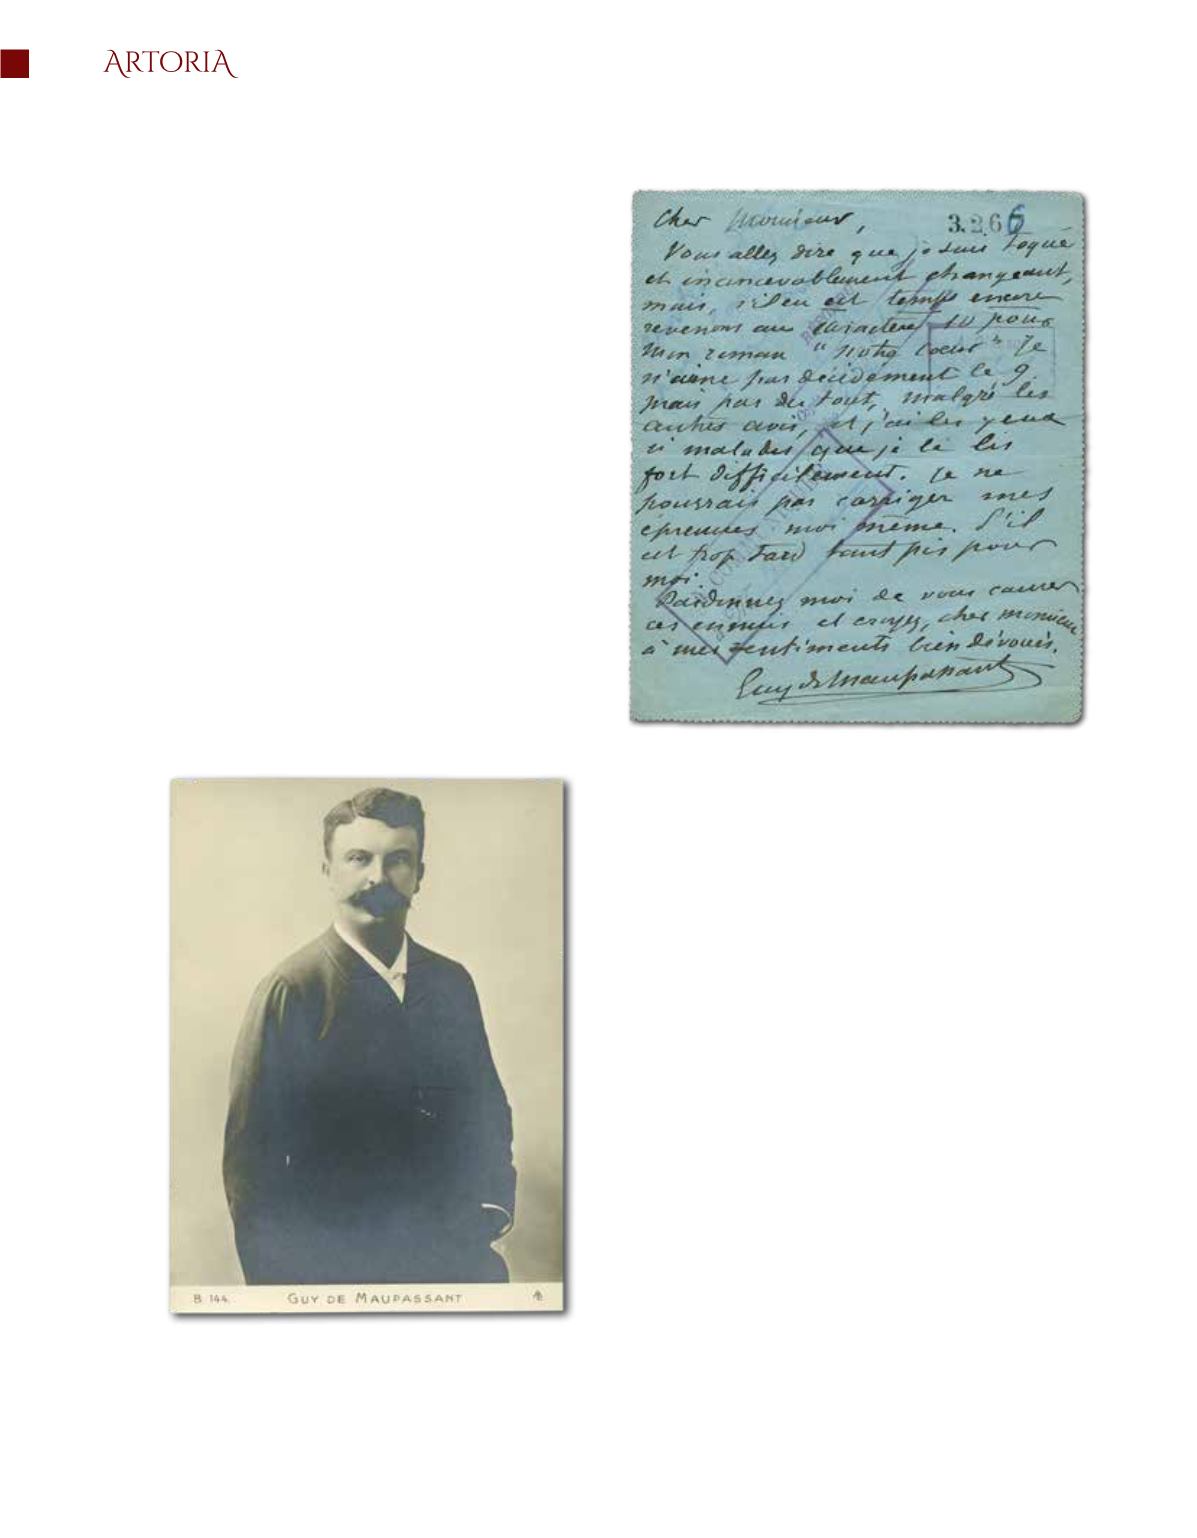 ARTORIA
Cher Monsieur,
3.266
Vous allez dire que je suis toqué
et inconcevablement changeant,
mais, s'il en est temps encore
revenons au caractère 10 pour
mon roman "Notre Coeur" Je
n'aime pas décidément le 9.
mais pas du tout, malgré les
autres avis, et j'ai les yeux
si malades que je le lis
fort difficilement. Je ne
pourrais pas corriger mes
épreuves moi même. S'il
est trop tard tant pis pour
moi.
Pardonnez moi de vous causer
ces ennuis et croyez, cher monsieur
à mes sentiments bien dévoués.
Guy de Maupassant
B. 144.
GUY DE MAUPASSANT